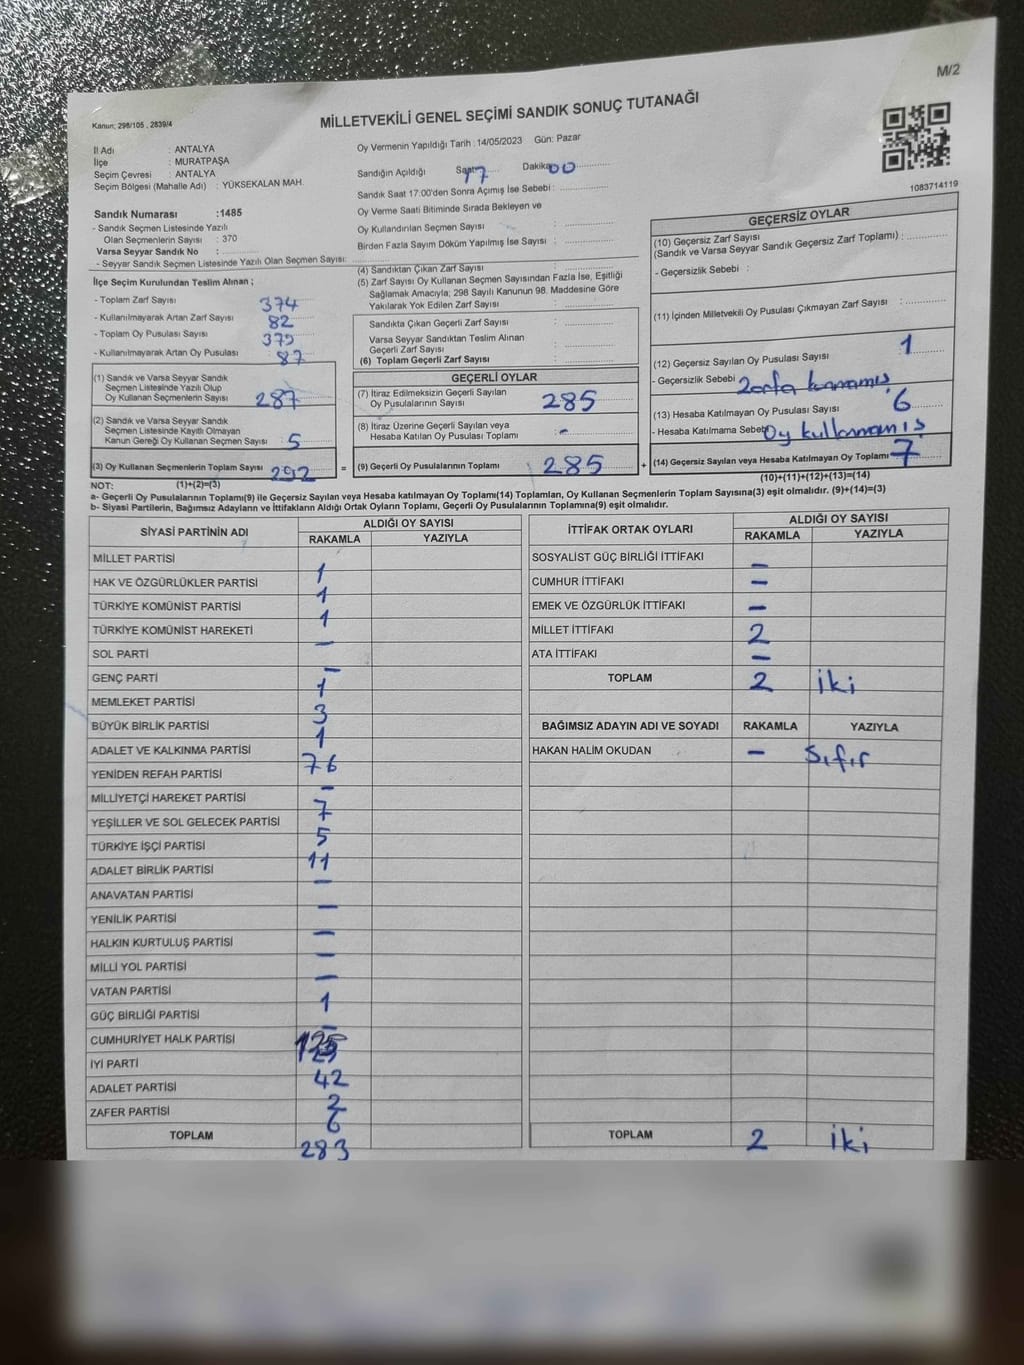 M/2
Kanun; 298/105 , 2839/4
MİLLETVEKİLİ GENEL SEÇİMİ SANDIK SONUÇ TUTANAĞI
İl Adı : ANTALYA
İlçe : MURATPAŞA
Seçim Çevresi : ANTALYA
Seçim Bölgesi (Mahalle Adı) : YÜKSEKALAN MAH.
Oy Vermenin Yapıldığı Tarih : 14/05/2023 Gün: Pazar
Sandığın Açıldığı Saat 17 Dakika 00
Sandık Saat 17:00'den Sonra Açımış İse Sebebi :
1083714119
Sandık Numarası :1485
- Sandık Seçmen Listesinde Yazılı
Olan Seçmenlerin Sayısı : 370
Varsa Seyyar Sandık No :
- Seyyar Sandık Seçmen Listesinde Yazılı Olan Seçmen Sayısı:
Oy Verme Saati Bitiminde Sırada Bekleyen ve
Oy Kullandırılan Seçmen Sayısı :
Birden Fazla Sayım Döküm Yapılmış İse Sayısı :
İlçe Seçim Kurulundan Teslim Alınan ;
- Toplam Zarf Sayısı : 374
- Kullanılmayarak Artan Zarf Sayısı : 82
- Toplam Oy Pusulası Sayısı : 379
- Kullanılmayarak Artan Oy Pusulası : 87
(1) Sandık ve Varsa Seyyar Sandık
Seçmen Listesinde Yazılı Olup
Oy Kullanan Seçmenlerin Sayısı : 287
(2) Sandık ve Varsa Seyyar Sandık
Seçmen Listesinde Kayıtlı Olmayan
Kanun Gereği Oy Kullanan Seçmen Sayısı : 5
(3) Oy Kullanan Seçmenlerin Toplam Sayısı 292 =
(1)+(2)=(3)
(4) Sandıktan Çıkan Zarf Sayısı :
(5) Zarf Sayısı Oy Kullanan Seçmen Sayısından Fazla İse, Eşitliği
Sağlamak Amacıyla; 298 Sayılı Kanunun 98. Maddesine Göre
Yakılarak Yok Edilen Zarf Sayısı :
Sandıkta Çıkan Geçerli Zarf Sayısı :
Varsa Seyyar Sandıktan Teslim Alınan
Geçerli Zarf Sayısı :
(6) Toplam Geçerli Zarf Sayısı :
GEÇERLİ OYLAR
(7) İtiraz Edilmeksizin Geçerli Sayılan
Oy Pusulalarının Sayısı 285
(8) İtiraz Üzerine Geçerli Sayılan veya
Hesaba Katılan Oy Pusulası Toplamı : -
(9) Geçerli Oy Pusulalarının Toplamı 285 +
GEÇERSİZ OYLAR
(10) Geçersiz Zarf Sayısı
(Sandık ve Varsa Seyyar Sandık Geçersiz Zarf Toplamı) :
- Geçersizlik Sebebi :
(11) İçinden Milletvekili Oy Pusulası Çıkmayan Zarf Sayısı :
(12) Geçersiz Sayılan Oy Pusulası Sayısı : 1
- Geçersizlik Sebebi
(13) Hesaba Katılmayan Oy Pusulası Sayısı : 6
- Hesaba Katılmama Sebebi Oy kullanmamış
(14) Geçersiz Sayılan veya Hesaba Katılmayan Oy Toplamı 7
(10)+(11)+(12)+(13)=(14)
NOT:
a- Geçerli Oy Pusulalarının Toplamı(9) ile Geçersiz Sayılan veya Hesaba katılmayan Oy Toplamı(14) Toplamları, Oy Kullanan Seçmenlerin Toplam Sayısına(3) eşit olmalıdır. (9)+(14)=(3)
b- Siyasi Partilerin, Bağımsız Adayların ve İttifakların Aldığı Ortak Oyların Toplamı, Geçerli Oy Pusulalarının Toplamına(9) eşit olmalıdır.
SİYASİ PARTİNİN ADI ALDIĞI OY SAYISI
RAKAMLA YAZIYLA
MİLLET PARTİSİ 1
HAK VE ÖZGÜRLÜKLER PARTİSİ 1
TÜRKİYE KOMÜNİST PARTİSİ 1
TÜRKİYE KOMÜNİST HAREKETİ -
SOL PARTİ -
GENÇ PARTİ 1
MEMLEKET PARTİSİ 3
BÜYÜK BİRLİK PARTİSİ 1
ADALET VE KALKINMA PARTİSİ 76
YENİDEN REFAH PARTİSİ -
MİLLİYETÇİ HAREKET PARTİSİ 7
YEŞİLLER VE SOL GELECEK PARTİSİ 5
TÜRKİYE İŞÇİ PARTİSİ 11
ADALET BİRLİK PARTİSİ -
ANAVATAN PARTİSİ -
YENİLİK PARTİSİ -
HALKIN KURTULUŞ PARTİSİ -
MİLLİ YOL PARTİSİ -
VATAN PARTİSİ 1
GÜÇ BİRLİĞİ PARTİSİ -
CUMHURİYET HALK PARTİSİ 125
İYİ PARTİ 42
ADALET PARTİSİ 2
ZAFER PARTİSİ 6
TOPLAM 283
İTTİFAK ORTAK OYLARI ALDIĞI OY SAYISI
RAKAMLA YAZIYLA
SOSYALİST GÜÇ BİRLİĞİ İTTİFAKI -
CUMHUR İTTİFAKI -
EMEK VE ÖZGÜRLÜK İTTİFAKI -
MİLLET İTTİFAKI 2
ATA İTTİFAKI -
TOPLAM 2 iki
BAĞIMSIZ ADAYIN ADI VE SOYADI RAKAMLA YAZIYLA
HAKAN HALİM OKUDAN - Sıfır
TOPLAM 2 iki